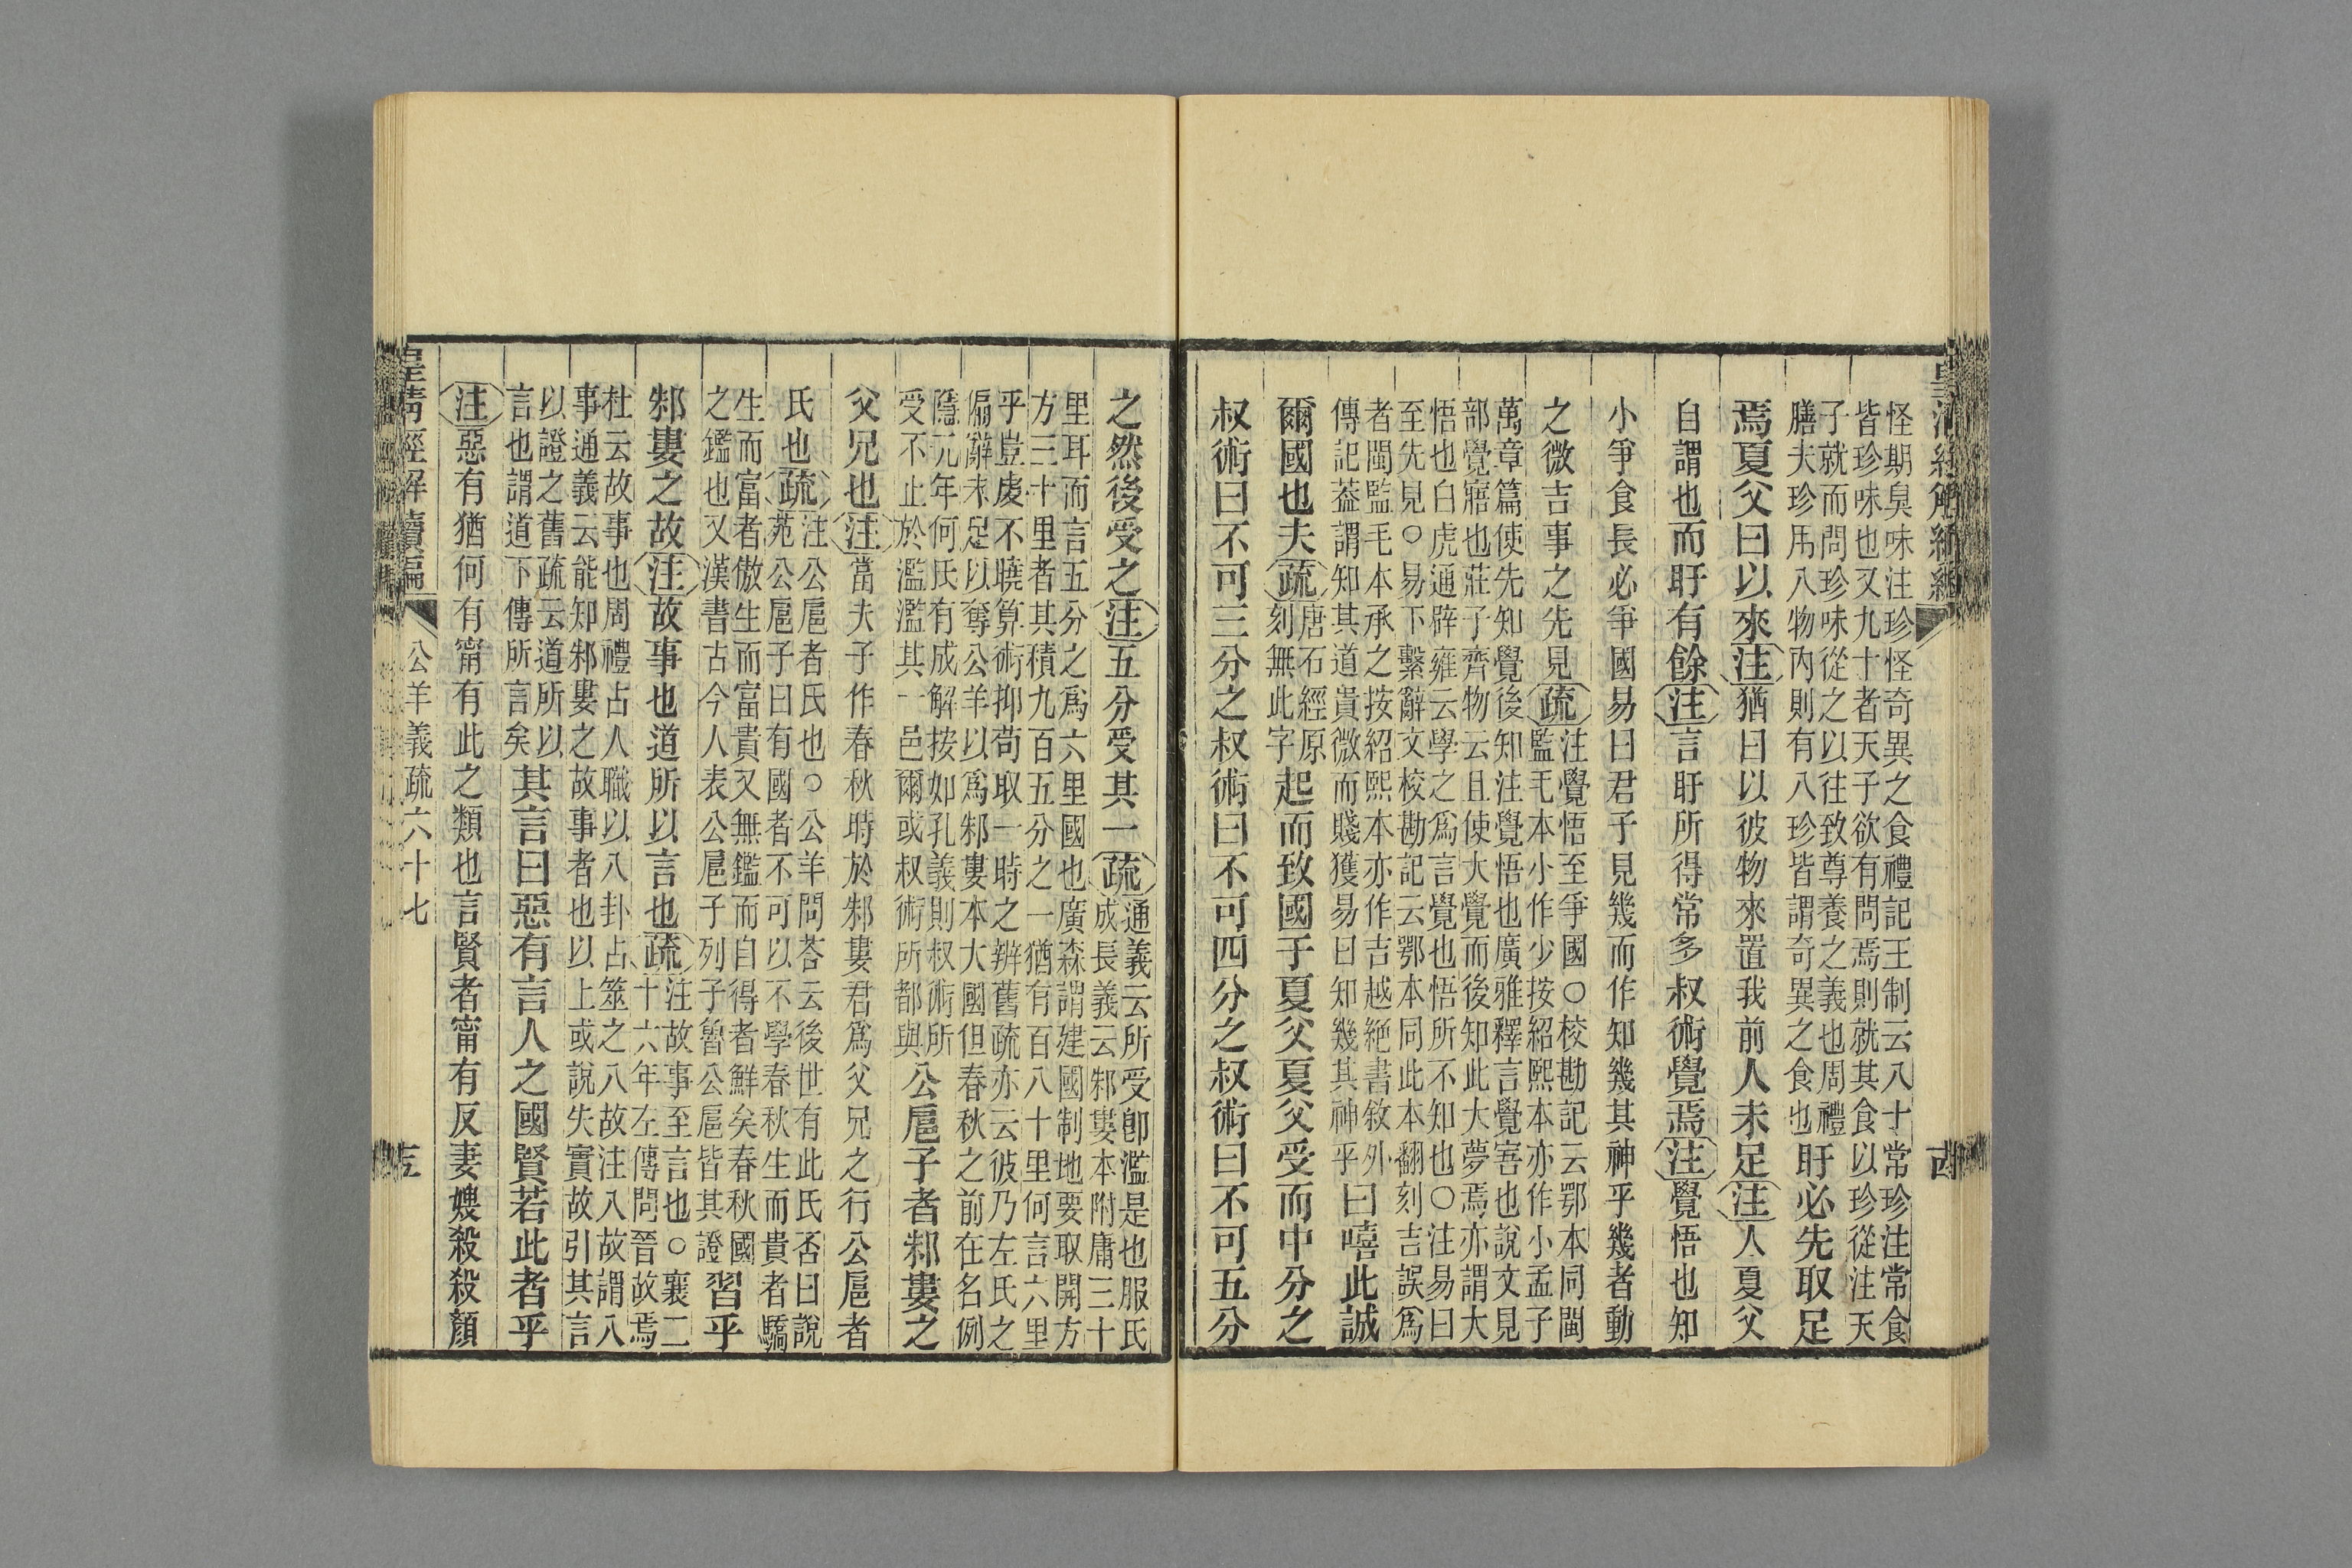 怪期臭味注珍怪奇異之食禮記王制云八十常珍注常食
皆珍味也又九十者天子欲有問焉則就其食以珍從注天
子就而問珍味從之以往致尊養之義也周禮
膳夫珍用八物內則有八珍皆謂奇異之食也
盱必先取足
焉夏父曰以來注猶曰以彼物來置我前人未足注人夏父
自謂也而盱有餘注言盱所得常多叔術覺焉注覺悟也知
小爭食長必爭國易曰君子見幾而作知幾其神乎幾者動
之微吉事之先見疏
注覺悟至爭國○校勘記云鄂本同閩
監毛本小作少按紹熙本亦作小孟子
萬章篇使先知覺後知注覺悟也廣雅釋言覺害也說文見
部覺寤也莊子齊物云且使大覺而後知此大夢焉亦謂大
悟也白虎通辟雍云學之爲言覺也悟所不知也○注易曰
至先見○易下繫辭文校勘記云鄂本同此本翻刻吉誤爲
者閩監毛本承之按紹熙本亦作吉越絕書敘外
傳記葢謂知其道貴微而賤獲易曰知幾其神乎
曰嘻此誠
爾國也夫疏
唐石經原
刻無此字
起而致國于夏父夏父受而中分之
叔術曰不可三分之叔術曰不可四分之叔術曰不可五分
之然後受之注五分受其一疏
通義云所受卽濫是也服氏
成長義云邾婁本附庸三十
里耳而言五分之爲六里國也廣森謂建國制地要取開方
方三十里者其積九百五分之一猶有百八十里何言六里
乎豈虔不曉算術抑苟取一時之辨舊疏亦云彼乃左氏之
偏辭未足以奪公羊以爲邾婁本大國但春秋之前在名例
隱元年何氏有成解按如孔義則叔術所
受不止於濫濫其一邑爾或叔術所都與
公扈子者邾婁之
父兄也注當夫子作春秋時於邾婁君爲父兄之行公扈者
氏也疏
注公扈者氏也○公羊問荅云後世有此氏否曰說
苑公扈子曰有國者不可以不學春秋生而貴者驕
生而富者傲生而富貴又無鑑而自得者鮮矣春秋國
之鑑也又漢書古今人表公扈子列子魯公扈皆其證
習乎
邾婁之故注故事也道所以言也疏
注故事至言也○襄二
十六年左傳問晉故焉
杜云故事也周禮占人職以八卦占筮之八故注八故謂八
事通義云能知邾婁之故事者也以上或說失實故引其言
以證之舊疏云道所以
言也謂道下傳所言矣
其言曰惡有言人之國賢若此者乎
注惡有猶何有甯有此之類也言賢者甯有反妻嫂殺殺顏
皇清經解續編
公羊義疏六十七